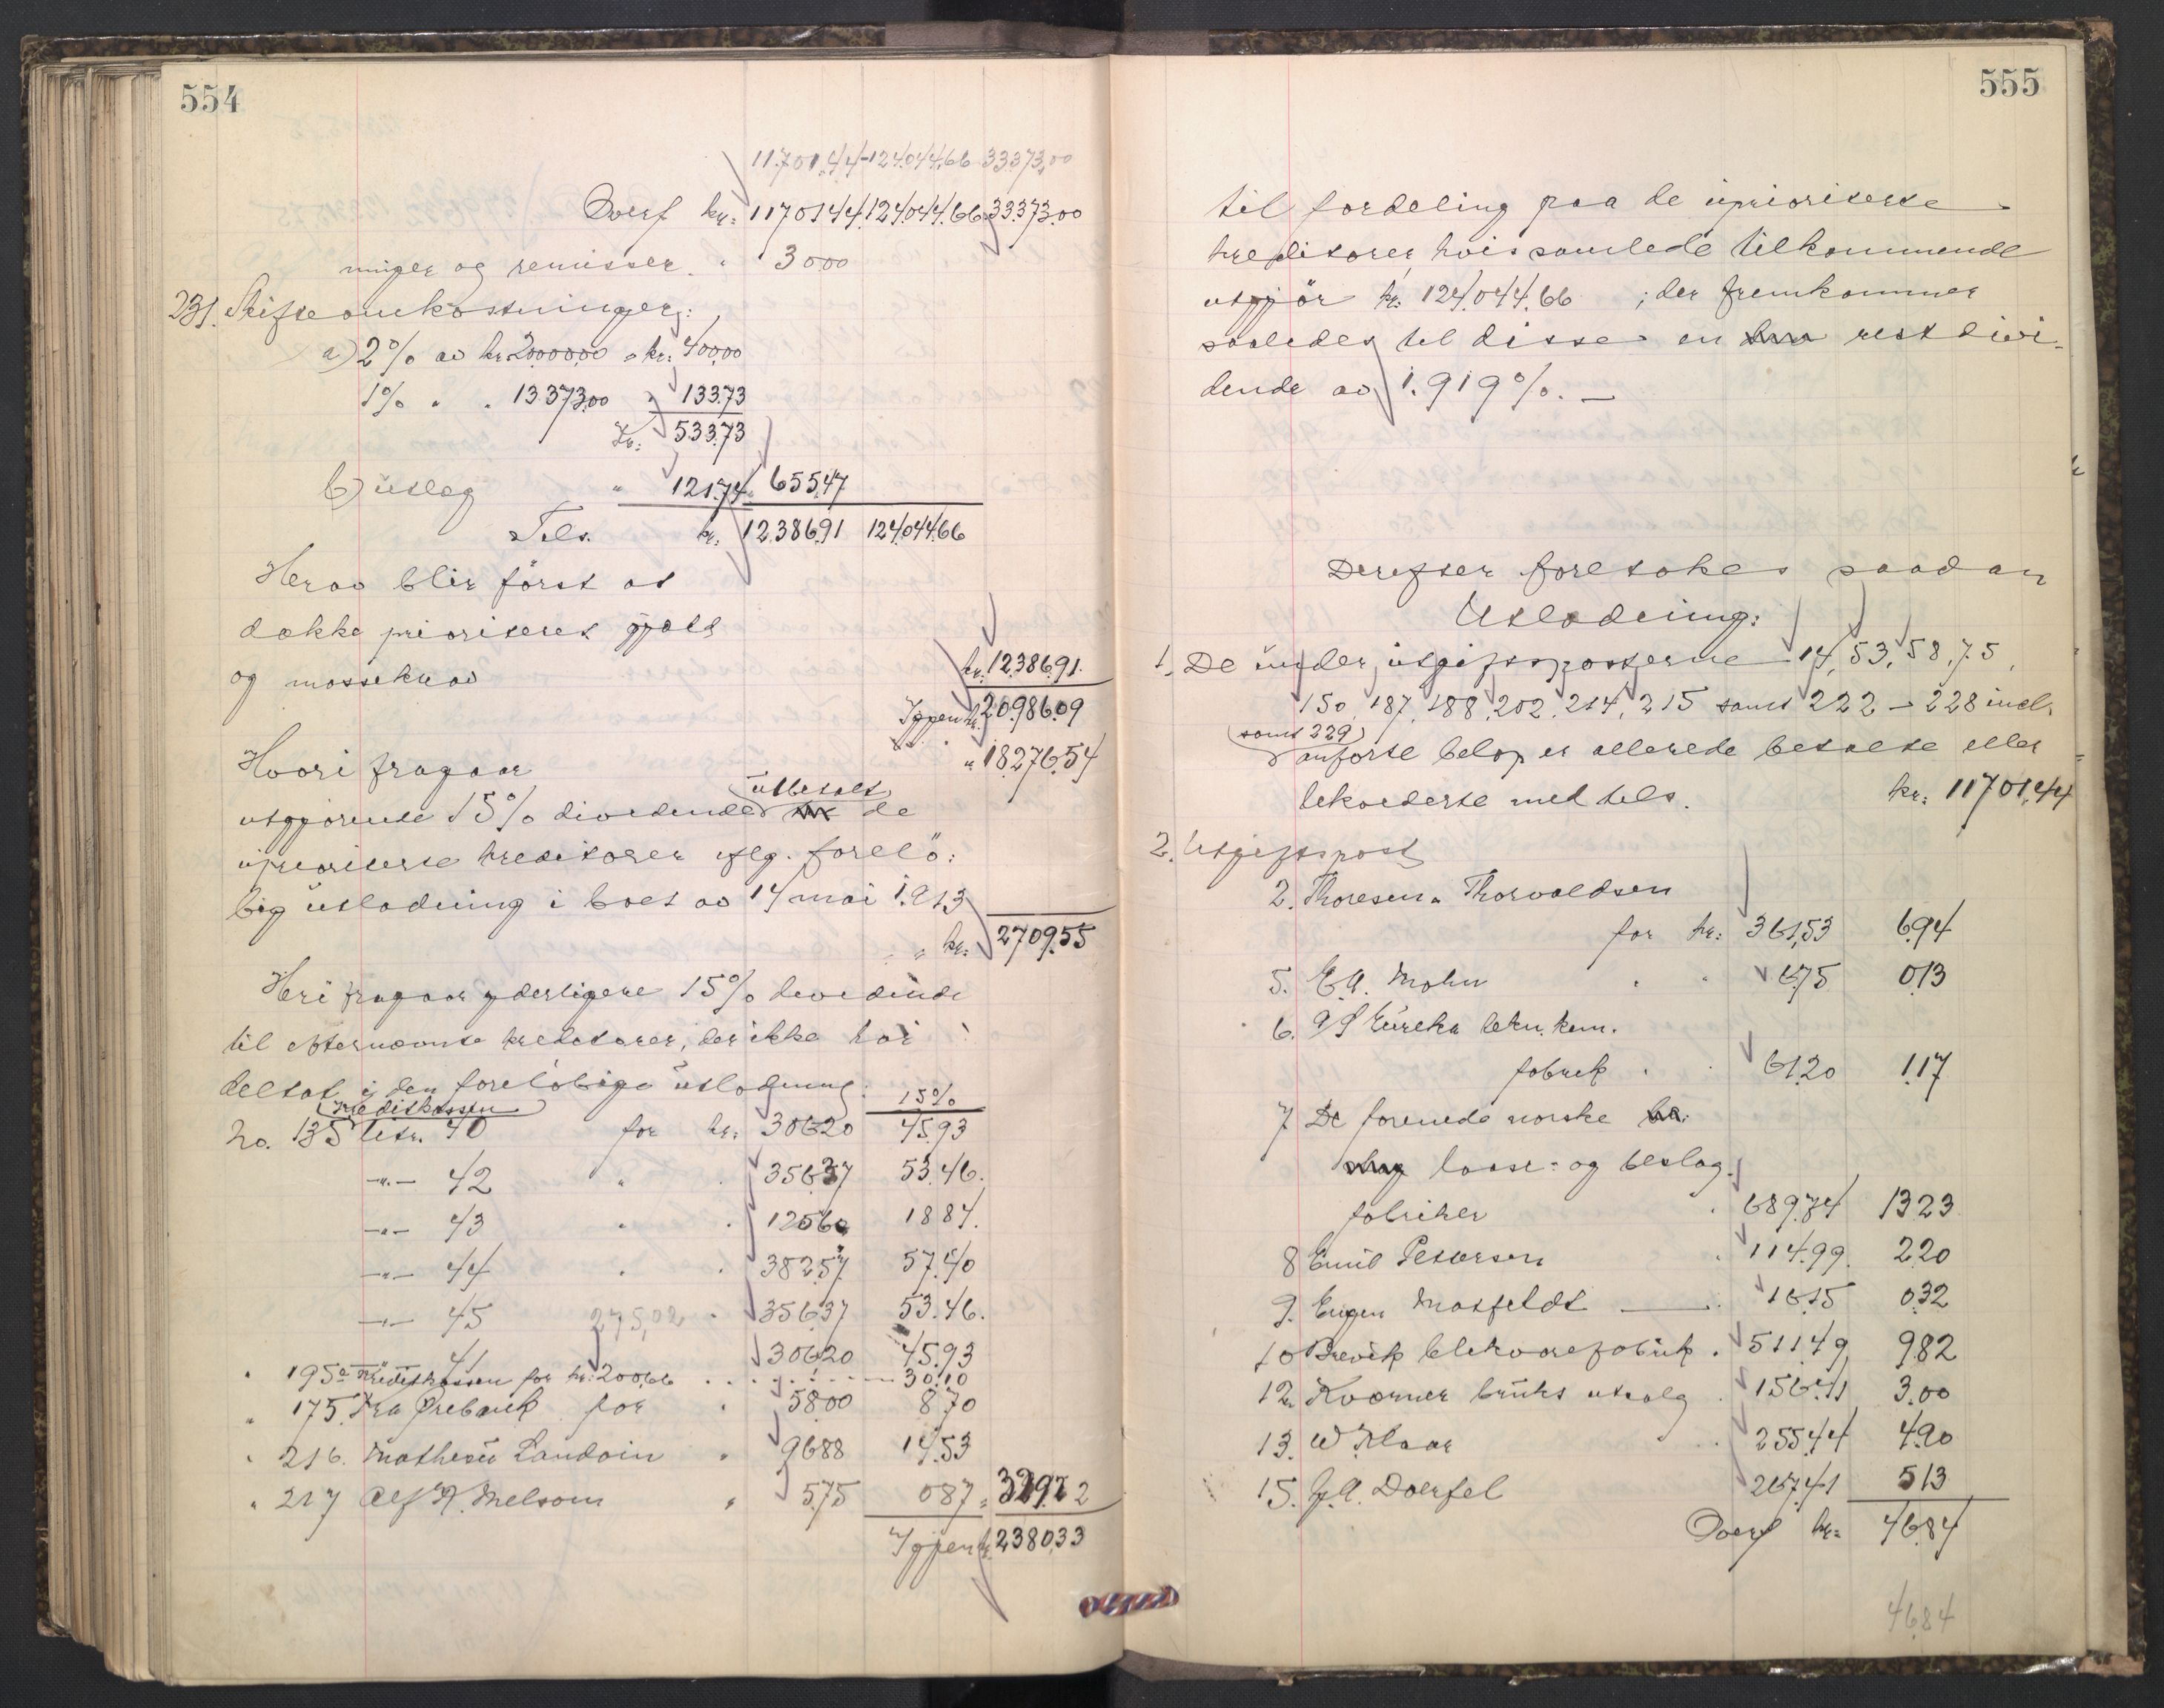 554
11.701,44 - 124.044,66 33.373,00
Overf kr: 11701.44 124.044.66 33.373.00
ninger og remisser. " 30 00
231. Skifteomkostninger:
a) 2% av kr. 20000 00 = kr: 400 00
1% " " 13 373,00 " 133.73
Kr: 533.73
b) utlæg " 121.74 " 655,47
Tils. kr. 12.386.91 124.044.66
Herav blir först at
dække prioritert gjæld
og massekrav kr. 12.386.91.
Igjen kr. 20.986.09
Hvori fragaar " 18.276.54
utbetalt
utgjørende 15% dividende de
uprioriterte kreditorer iflg. forelö:
big utlodning i boet av 14 mai 1913
" kr: 2709.55
Heri fragaar yderligere 15% dividende
til efternævnte kreditorer, der ikke har
deltat i den forelöbige utlodning:
15%
Kreditkassen
No. 135 litr. 40 for kr: 306.20 45.93
-"- 42 " " 356.37 53.46.
-"- 43 " " 125.60 18.84.
-"- 44 " " 382.57 57.40
-"- 45 275,02 " 356.37 53.46.
41 306.20 45.93
" 195a Kreditkassen for kr: 200,66 30.10
" 175. Fra Ørebank for " 58.00 8.70
" 216. Mathesü Landoin " 96.88 14.53
" 217 Alf A. Melsom " 5.75 0 87 = 329.22
Igjen kr. 2380.33
555
til fordeling paa de uprioriterte
kreditorer, hvis samlede tilkommende
utgjör kr: 124.044.66 ; der fremkommer
saaledes til disse en rest divi-
dende av 1.919%. —
Derefter foretokes saadan
Utlodning:
1. De under utgiftsposterne 14, 53, 58, 75,
150, 187, 188, 202, 214, 215 samt 222 - 228 incl.
samt 229
anförte belöp er allerede betalte eller
bekorderte med tils. kr: 11701,44
2. Utgiftspost
2. Thoresen & Thorvaldsen
for kr: 361,53 6.94
5. E.A. Mohn " " 6.75 0.13
6. A/S Eureka tekn. kem.
fabrik " " 61.20 1.17
7 De forenede norske
laase- og beslag-
fabriker " 689.74 13 23
8 Emil Petersen " 114.99. 2.20
9. Eugen Mosfeldt — " 16.15 0.32
10 Brevik blikvarefabrik " 511.49 9.82
12. Kværner bruks utsalg " 156.41 3.00
13. W. Klaar " 255.44 4.90
15. G.A. Doerfel 267.41 5 13
Overf kr= 46.84
46.84